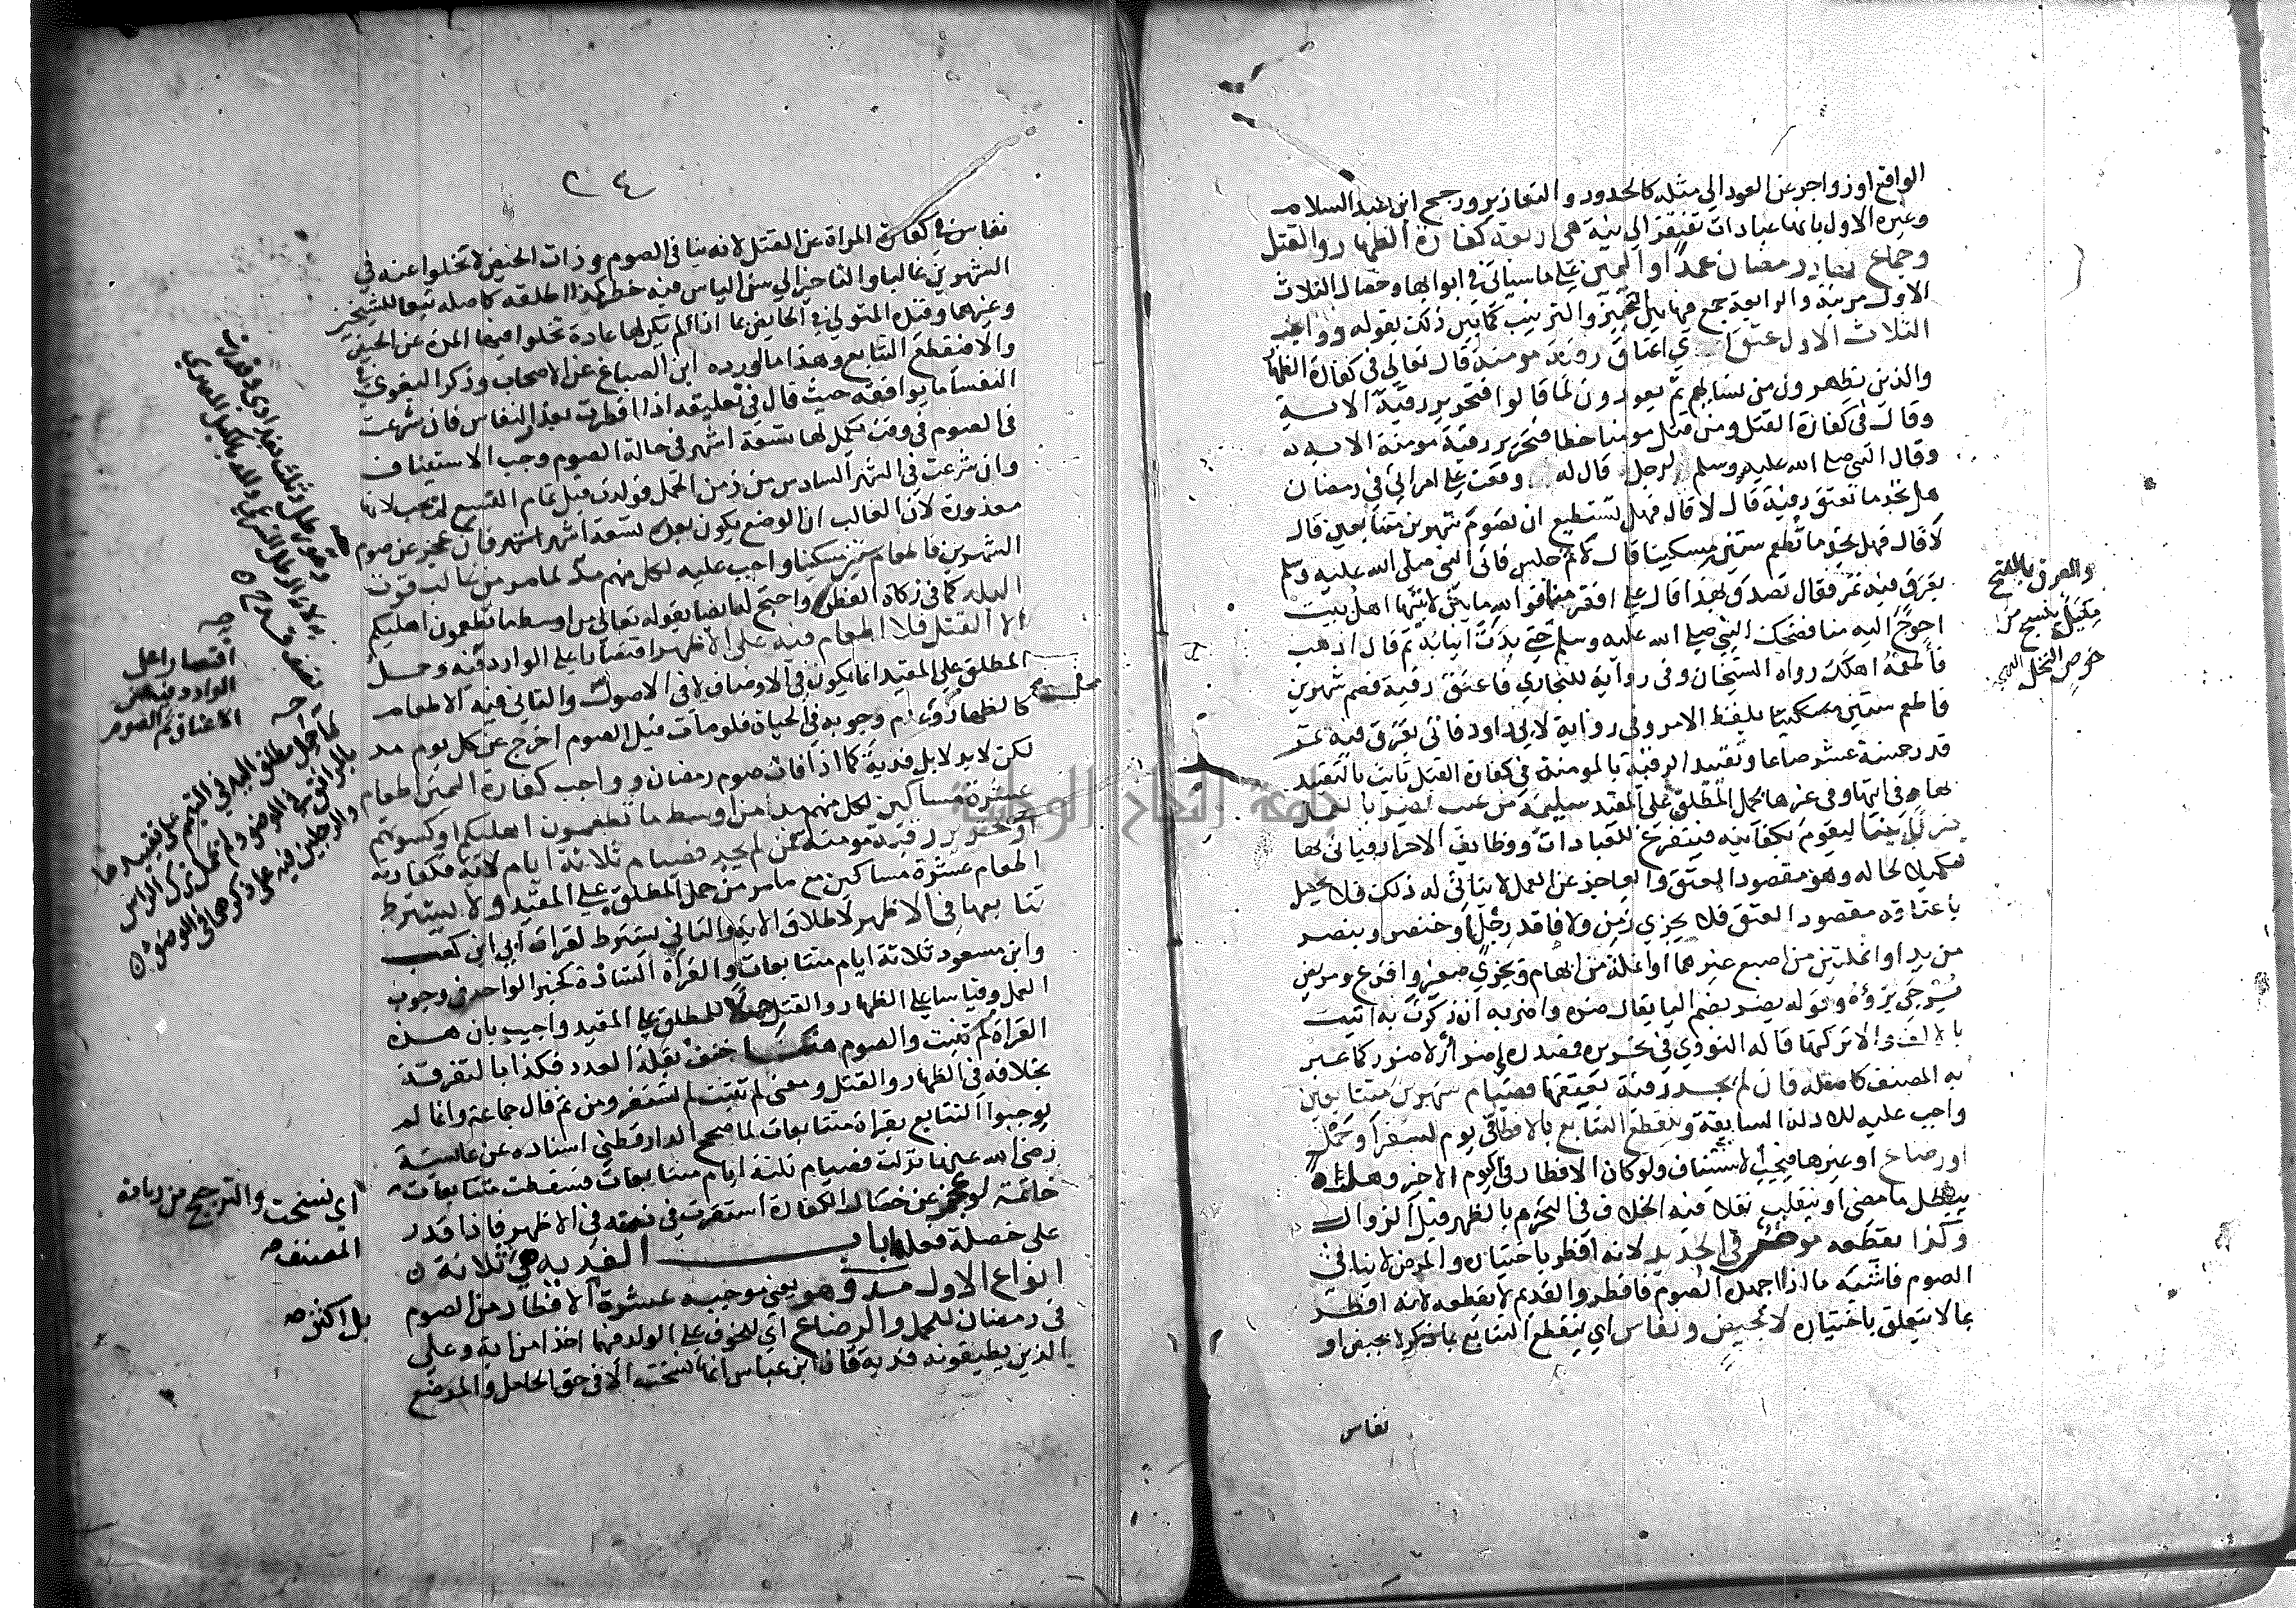 الواقع او زواجر عن العود الي مثله كالحدود والتعازير ورجح ابن عبد السلام
وغيره الاول بانها عبادات تفتقر الي نية هي اربعة كفارة الظهار والقتل
وجماع نهار رمضان عمدا او اليمين علي ما سياتي في ابوابها وخصال الثلاث
الاول مرتبة والرابعة جمع فيها بين التخيير والترتيب كما بين ذلك بقوله وواجب
الثلاث الاول عتق اي اعتاق رقبة مومنة قال تعالي في كفارة الظهار
والذين يظهرون من نسائهم ثم يعودون لما قالوا فتحرير رقبة الاية
وقال في كفارة القتل ومن قتل مومنا خطا فتحرير رقبة مومنة الاية
وقال النبي صلي الله عليه وسلم لرجل قال له وقعت علي امراتي في رمضان
هل تجد ما تعتق رقبة قال لا قال فهل تستطيع ان تصوم شهرين متتابعين قال
لا قال فهل تجد ما تطعم ستين مسكينا قال لا ثم جلس فاتي النبي صلي الله عليه وسلم
بعرق فيه تمر فقال تصدق بهذا قال علي افقر منا فوالله ما بين لابتيها اهل بيت
احوج اليه منا فضحك النبي صلي الله عليه وسلم حتي بدت انيابه ثم قال اذهب
فأطعمه اهلك رواه الشيخان وفي رواية للبخاري فاعتق رقبة فصم شهرين
فاطعم ستين مسكينا بلفظ الامر وفي رواية لابي داود فاتي بعرق فيه تمر
قدر خمسة عشر صاعا وتقييد الرقبة بالمومنة في كفارة القتل ثابت بالتقييد
بها في ايتها وفي غيرها بحمل المطلق علي المقيد سليمة من عيب يضر بالعمل
ليقوم بكفايته فيتفرغ للعبادات ووظايف الاحرار فياتي بها
تكميلا لحاله وهو مقصود العتق والعاجز عن العمل لا يتاتي له ذلك فلا يحصل
باعتاقه مقصود العتق فلا يجزي زمن ولا فاقد رجل او خنصر وبنصر
من يد او انملتين من اصبع غيرهما او انملة من ابهام ويجزي صغير واقرع ومريض
يرجي برؤه وقوله يضر بضم اليا يقال ضره واضر به ان ذكرت به اتيت
بالالف والا تركتها قاله النووي في تحريره
به المصنف كاصله فان لم يجد رقبة يعتقها فصيام شهرين متتابعين
واجب عليه للادلة السابقة وينقطع التتابع بالافطار في يوم لسفر او حمل
او رضاع او غيرها فيجب الاستيناف ولو كان الافطار في اليوم الاخر وهل
يبطل ما مضي او ينقلب نفلا فيه الخلاف في التحرم بالظهر قبل الزوال
وكذا يقطعه مرض في الجديد لانه افطر باختياره والمرض لا ينافي
الصوم فاشبه ما اذا اجهده الصوم فافطر والقديم لا يقطعه لانه افطر
بما لا يتعلق باختياره لا بحيض ونفاس اي ينقطع التتابع بما ذكر لا بحيض او
نفاس
والعرق بالفتح
مكتل ينسج من
خوص النخل
٢٤
نفاس في كفارة المراة عن القتل لانه ينافي الصوم وذات الحيض لا تخلوا عنه في
الشهرين غالبا والتاخير الي سن الياس فيه خطر كذا اطلقه كاصله تبعا للشيخين
وغيرهما وقيده المتولي في الحايض بما اذا لم يكن لها عادة تخلوا فيها المدة عن الحيض
والا فينقطع التتابع وهذا ما اورده ابن الصباغ عن الاصحاب وذكر البغوي في
النفسا ما يوافقه حيث قال في تعليقه اذا افطرت بعذر النفاس فان شرعت
في الصوم في وقت يكمل لها تسعة اشهر في حالة الصوم وجب الاستيناف
وان شرعت في الشهر السادس من زمن الحمل فولدت قبل تمام التسع لم يجب لانها
معذورة لان الغالب ان الوضع يكون بعد تسعة اشهر فان عجز عن صوم
الشهرين فاطعام ستين مسكينا واجب عليه لكل منهم مد لما مر من غالب قوت
البلد كما في زكاة الفطر واحتج له ايضا بقوله تعالي من اوسط ما تطعمون اهليكم
الا القتل فلا اطعام فيه علي الاظهر اقتصارا علي الوارد فيه وحمل
المطلق علي المقيد انما يكون في الاوصاف لا في الاصول والثاني فيه الاطعام
كالظهار وعدم وجوبه في الحياة فلو مات قبل الصوم اخرج عن كل يوم مد
لكن لا بدلا بل فدية كما اذا فات صوم رمضان وواجب كفارة اليمين اطعام
عشرة مساكين لكل منهم مد من اوسط ما تطعمون اهليكم او كسوتهم
او تحرير رقبة مومنة فمن لم يجد فصيام ثلاثة ايام لاية فكفارته
اطعام عشرة مساكين مع ما مر من حمل المطلق علي المقيد ولا يشترط
تتابعها في الاظهر لاطلاق الاية والثاني يشترط لقراة ابي ابن كعب
وابن مسعود ثلاثة ايام متتابعات والقراة الشاذة كخبر الواحد في وجوب
العمل وقياسا علي الظهار والقتل حملا للمطلق علي المقيد واجيب بان هذه
القراة لم تثبت والصوم هنا خفف بقلة العدد فكذا بالتفرقة
بخلافه في الظهار والقتل ومعني لم تثبت لم تستقر ومن ثم قال جماعة وانما لم
يوجبوا التتابع بقراة متتابعات لما صحح الدارقطني اسناده عن عايشة
رضي الله عنها نزلت فصيام ثلثة ايام متتابعات فسقطت متتابعات
خاتمة لو عجز عن خصال الكفارة استقرت في ذمته في الاظهر فاذا قدر
علي خصلة فعلها باب الفدية هي ثلاثة
انواع الاول مد وهو يعني موجبه عشرة الافطار من الصوم
في رمضان للحمل والرضاع اي للخوف علي الولد فيهما اخذا من اية وعلي
الذين يطيقونه فدية قال ابن عباس انها نسخت الا في حق الحامل والمرضع
اقتصارا علي
الوارد فيه من
الاعتاق ثم الصوم
كما حمل مطلق اليد في التيمم علي تقييدها
بالمرافق في الوضو ولم يحمل ترك الراس
والرجلين فيه علي ذكرهما في الوضو
اي نسخت والترجيح من زيادة
المصنف
بل اكثر